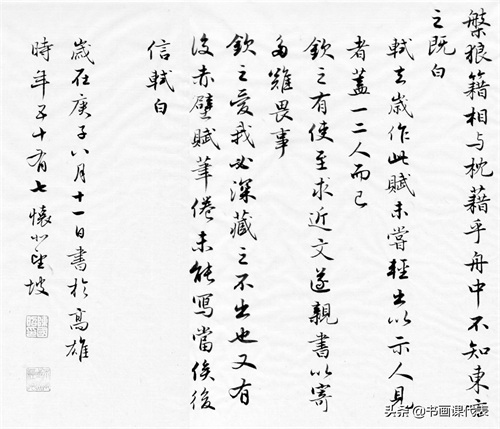 槃狼籍相与枕藉乎舟中不知東方
之既白
軾去歲作此賦未嘗輕出以示人見
者蓋一二人而已
欽之有使至求近文遂親書以寄
多難畏事
欽之愛我必深藏之不出也又有
後赤壁賦筆倦未能寫當俟後
信軾白
歲在庚子八月十一日書於高雄
時年五十有七
头条@书画课代表